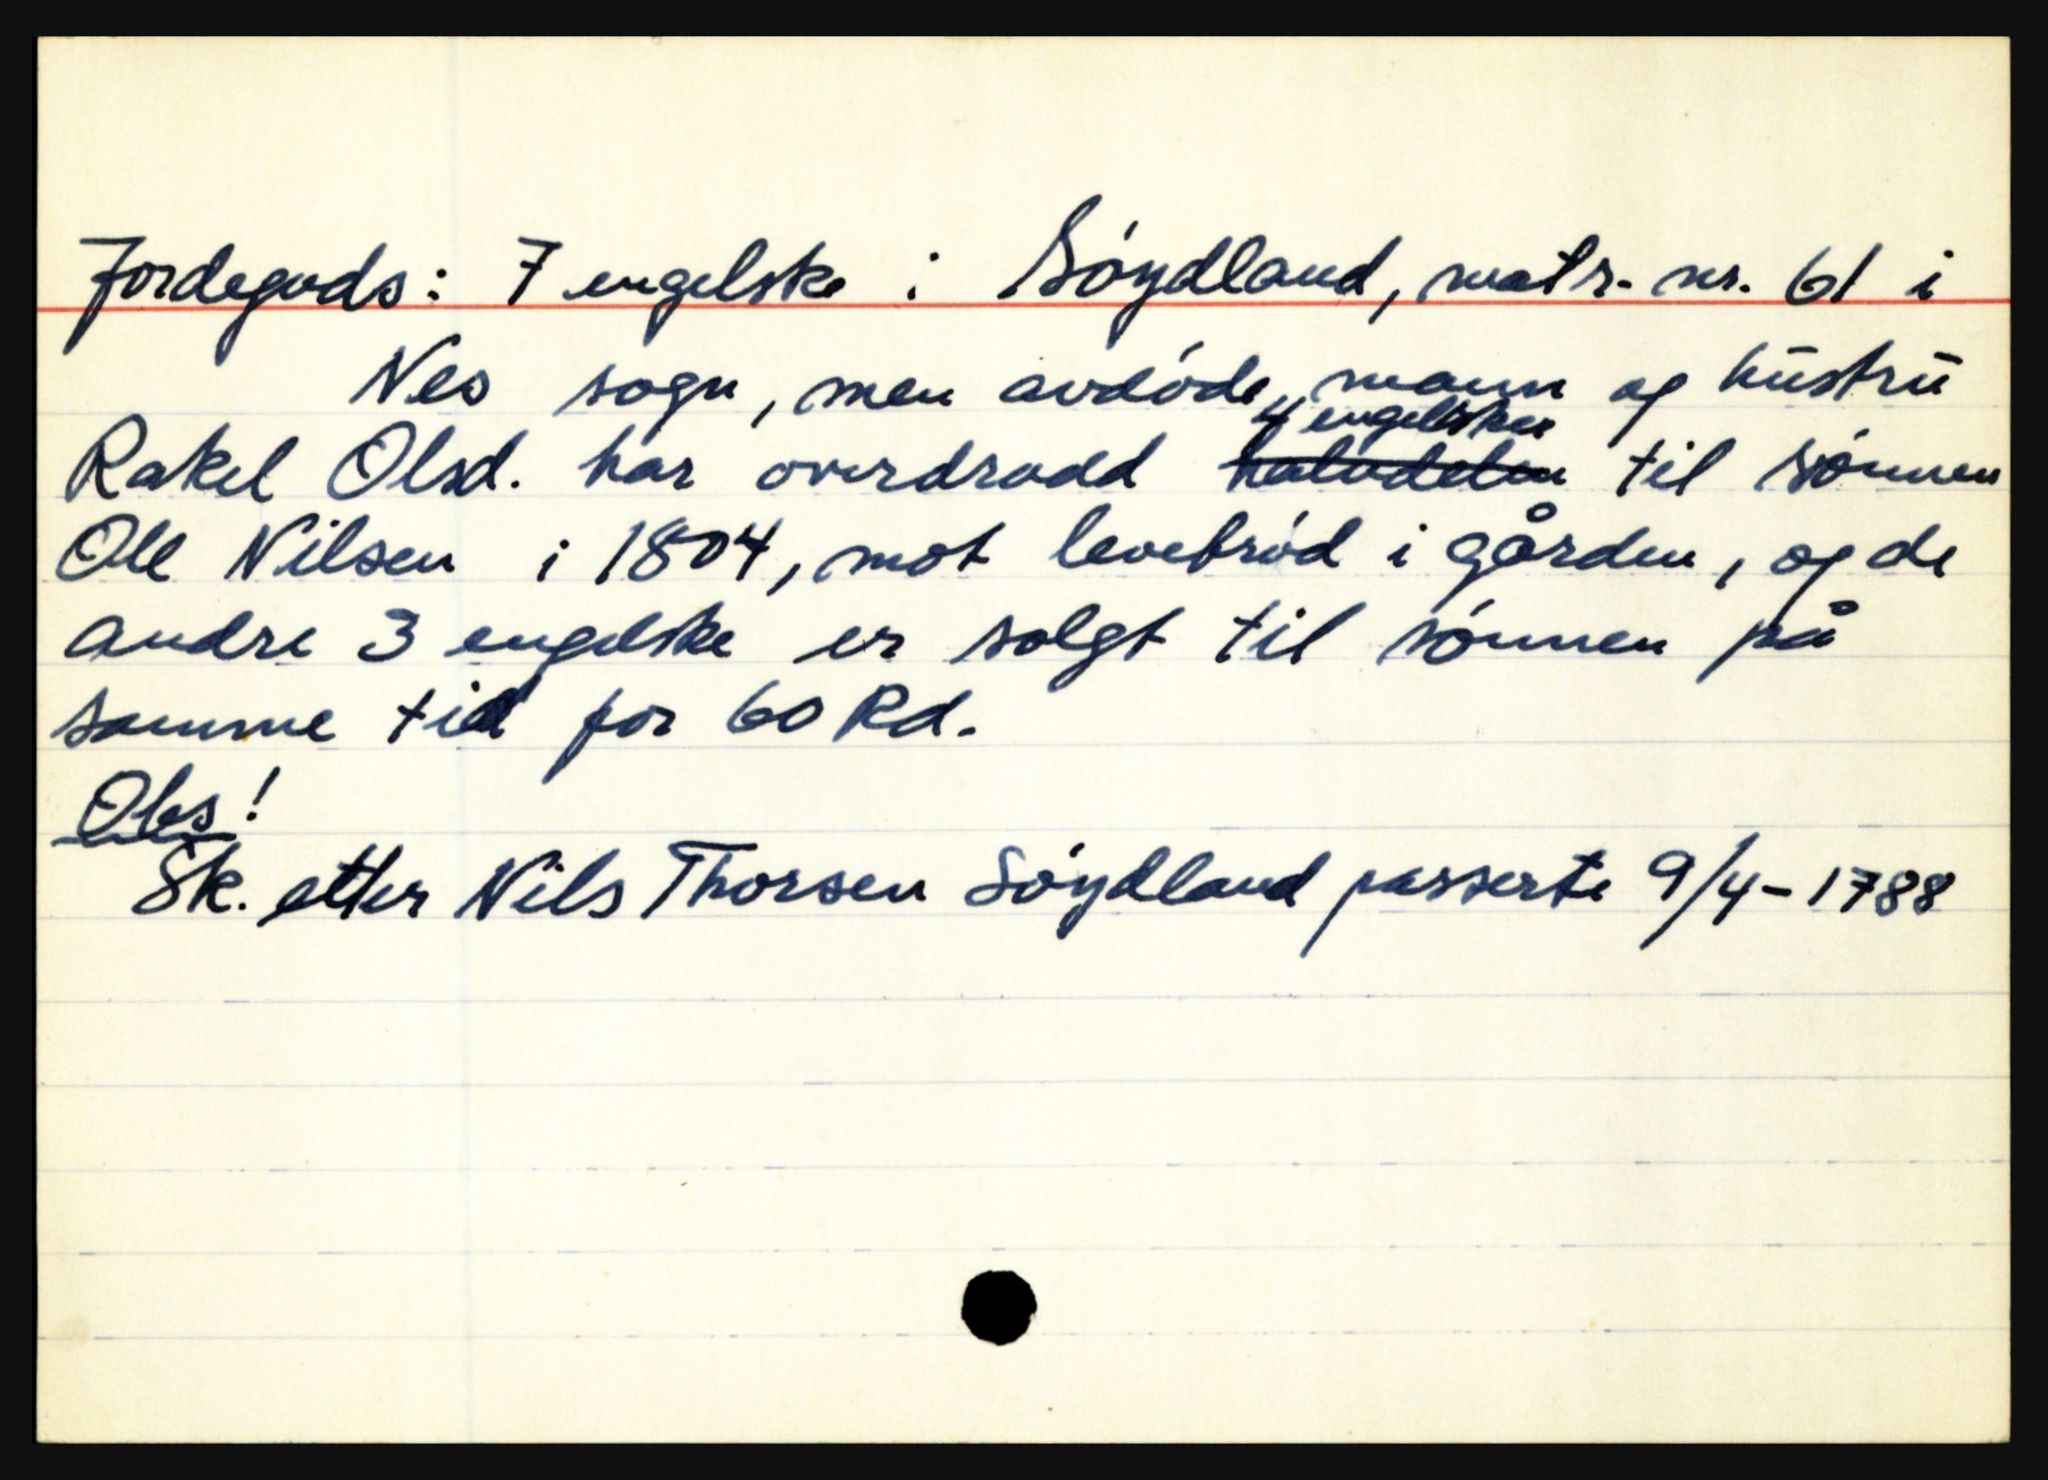 Jordegods: 7 engelske i Søydland, matr. nr. 61 i
Nes sogn, men avdøde mann og hustru
4 engelske
Rakel Olsd. har overdradd halvdelen til sønnen
Ole Nilsen i 1804, mot levebrød i gården, og de
andre 3 engelske er solgt til sønnen på
samme tid for 60 Rd.
Obs!
Sk. etter Nils Thorsen Søydland passerte 9/4-1788